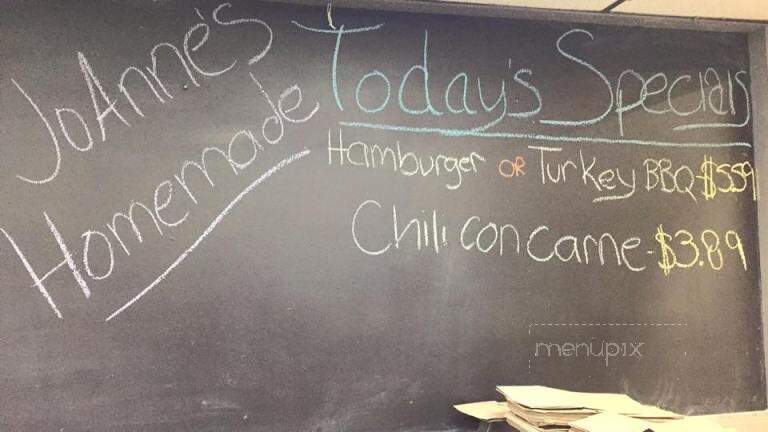 JoAnne's
Homemade
Today's Specials
Hamburger OR Turkey BBQ-$5.59
Chili con carne-$3.89
menupix